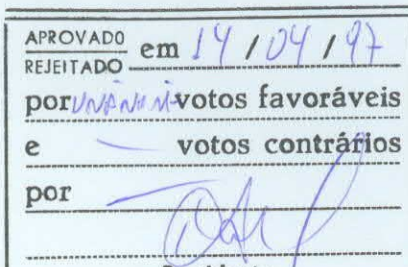 APROVADO
REJEITADO em 14 / 04 / 97
por votos favoráveis
e — votos contrários
por —